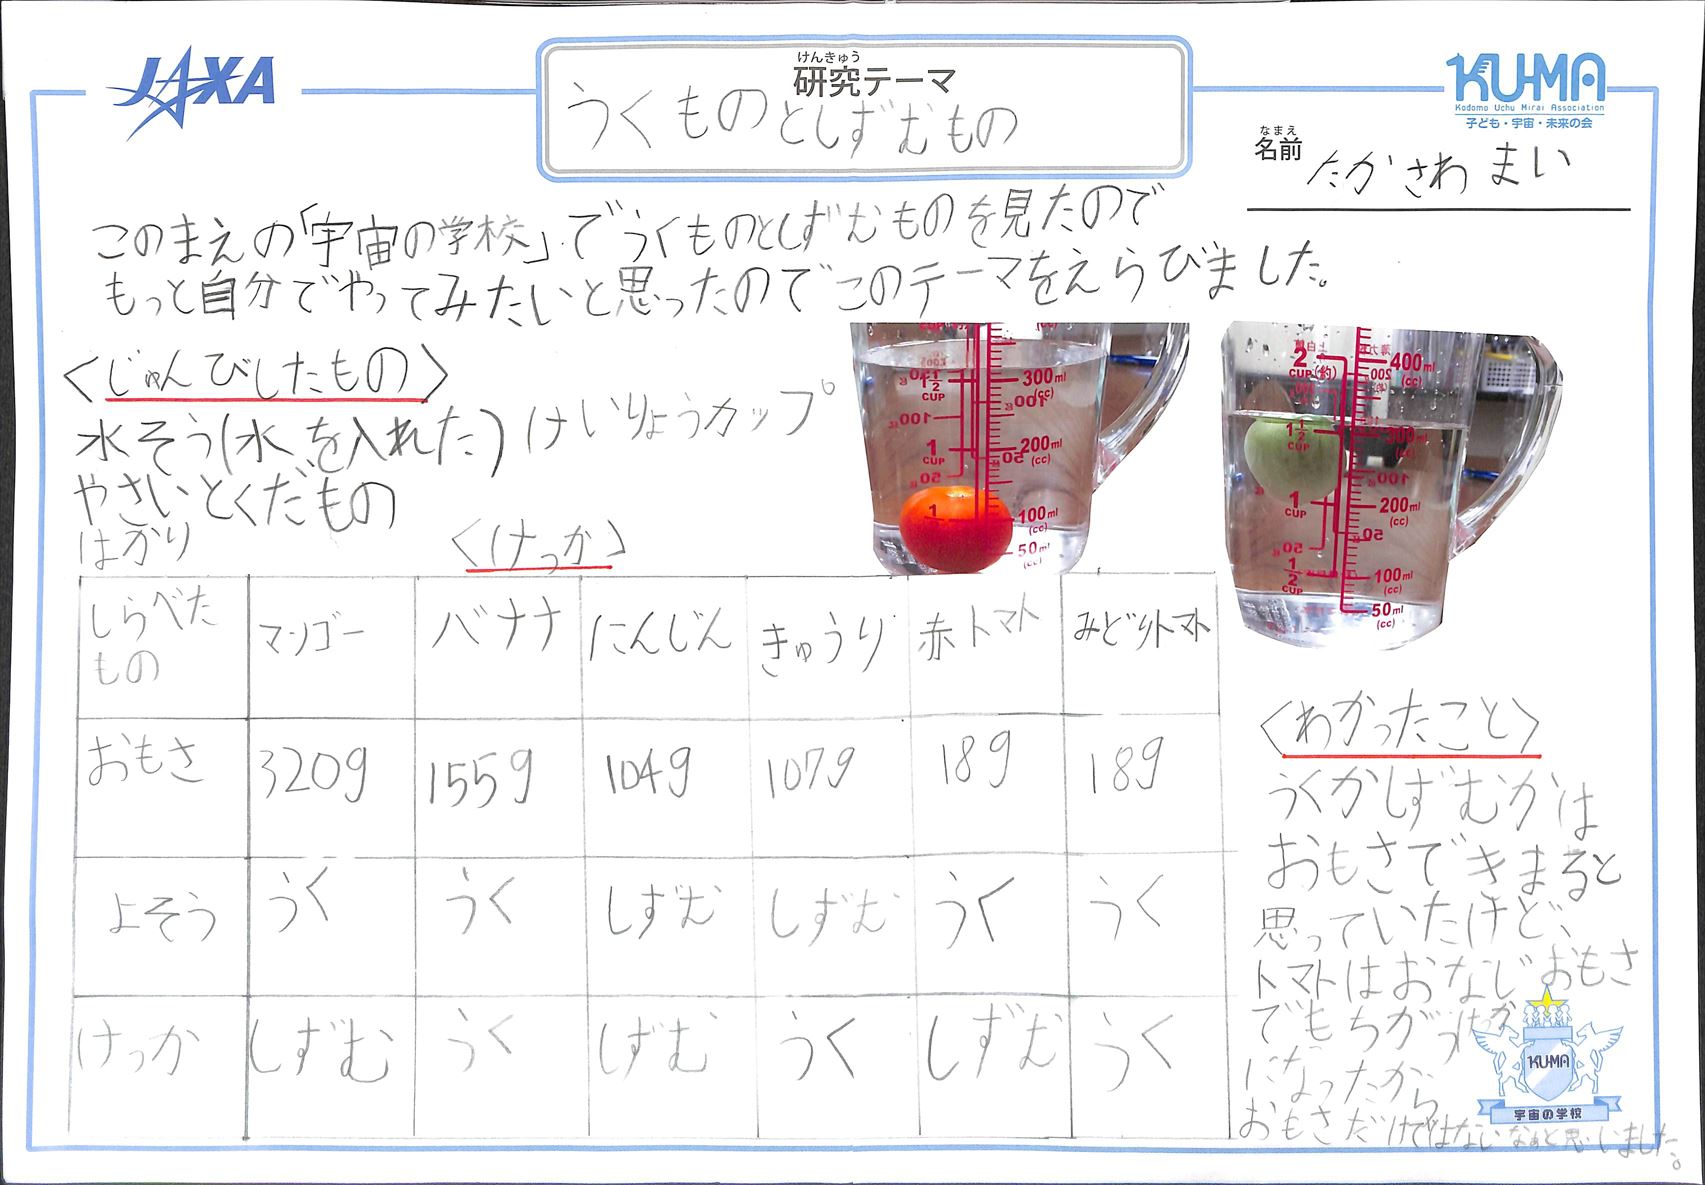 JAXA
けんきゅう
研究テーマ
うくものとしずむもの
KU-MA
Kodomo Uchu Mirai Association
子ども・宇宙・未来の会
なまえ
名前 たかさわ まい
このまえの「宇宙の学校」でうくものとしずむものを見たので
もっと自分でやってみたいと思ったのでこのテーマをえらびました。
<じゅんびしたもの>
水そう(水を入れた) けいりょうカップ
やさいとくだもの
はかり
300ml
(cc)
1 1/2
CUP
200ml
(cc)
1
CUP
100ml
(cc)
50ml
2
CUP(約)
400ml
(cc)
1 1/2
CUP
300ml
1
CUP
200ml
(cc)
1/2
CUP
100ml
(cc)
50ml
(cc)
<けっか>
しらべたもの マンゴー バナナ にんじん きゅうり 赤トマト みどりトマト
おもさ 320g 155g 104g 107g 18g 18g
よそう うく うく しずむ しずむ うく うく
けっか しずむ うく しずむ うく しずむ うく
<わかったこと>
うくかしずむかは
おもさできまると
思っていたけど、
トマトはおなじおもさ
でもちがうけっか
になったから
おもさだけではないなぁと思いました。
KU-MA
宇宙の学校